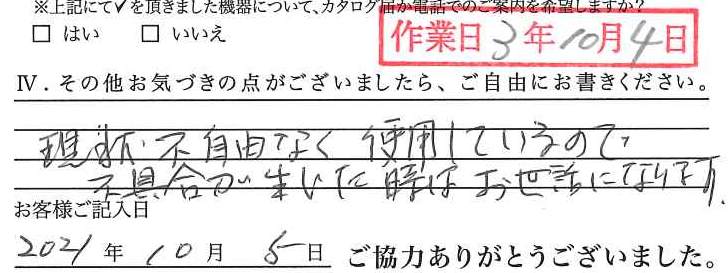 ※上記にて✓を頂きました機器について、カタログ届か電話でのご案内を希望しますか?
□ はい □ いいえ
作業日 3年10月4日
Ⅳ.その他お気づきの点がございましたら、ご自由にお書きください。
現状、不自由なく使用しているので、
不具合が生じた時はお世話になります。
お客様ご記入日
2021年10月5日 ご協力ありがとうございました。